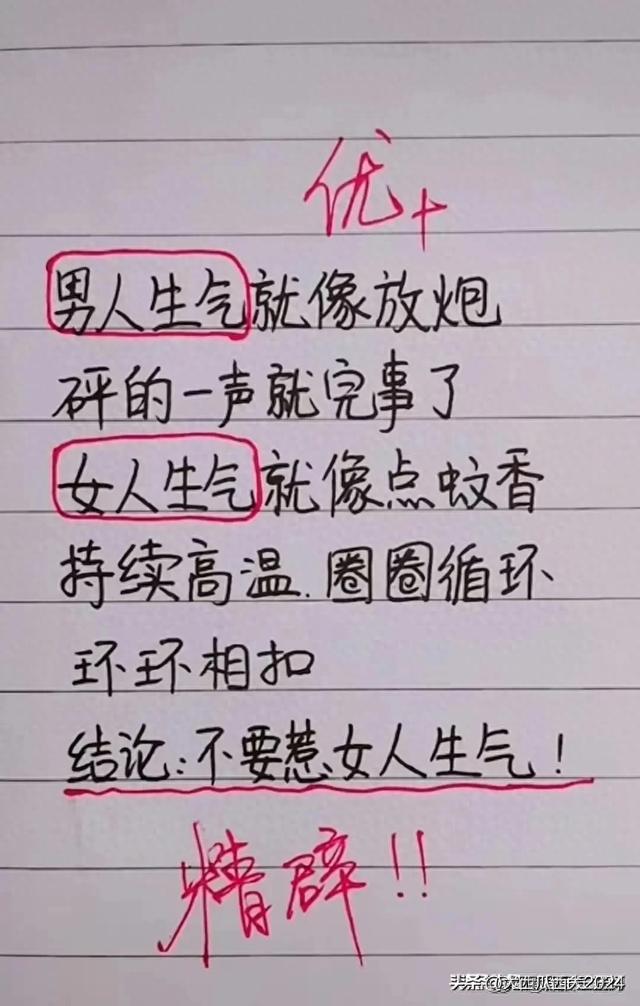 优+
男人生气就像放炮
砰的一声就完事了
女人生气就像点蚊香
持续高温.圈圈循环
环环相扣
结论:不要惹女人生气!
精辟!!
头条@大西瓜西关2024